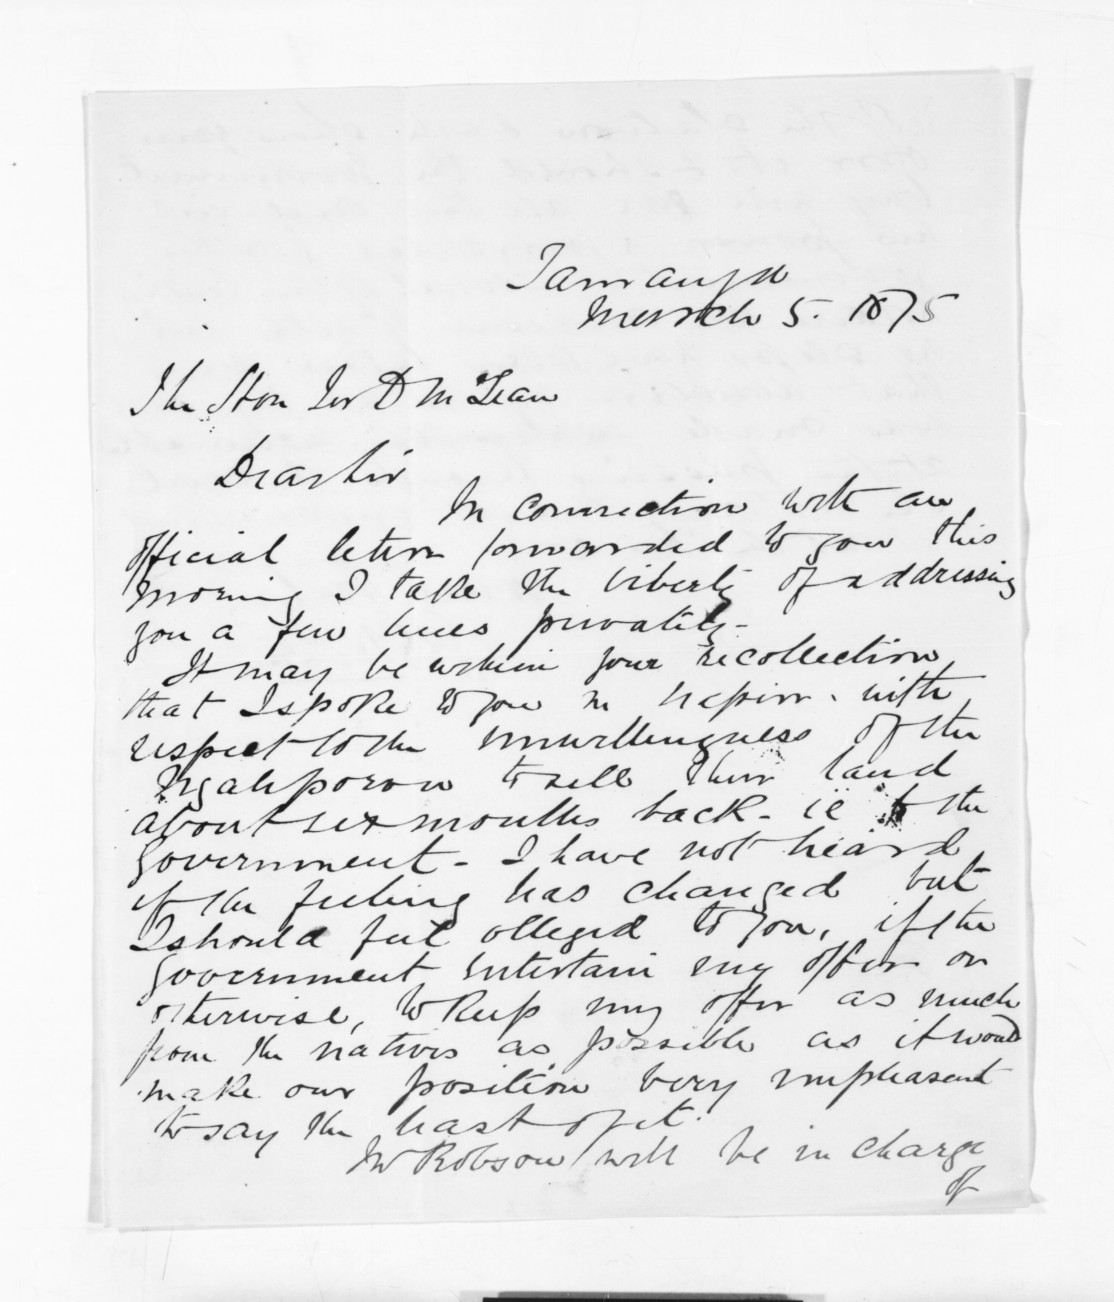 Tamaunga
March 5. 1875
The Hon Sir D McLean
Dear Sir
In connection with an
official letter forwarded to you this
morning I take the liberty of addressing
you a few lines privately -
It may be within your recollection
that I spoke to you in Napier. with
respect to the unwillingness of the
Ngatiporou to sell their land
about six months back - ie to the
Government - I have not heard
if the feeling has changed but
I should feel obliged to you, if the
Government entertain my offer or
otherwise, to keep my offer as much
from the natives as possible as it would
make our position very unpleasant
to say the least of it.
Mr Robson will be in charge
of